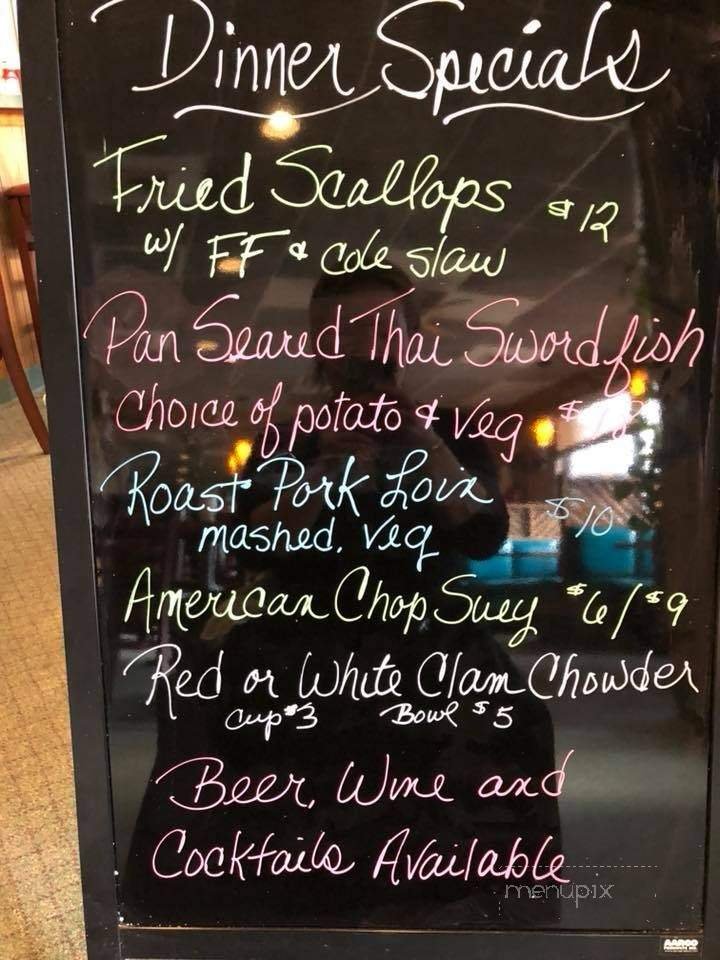 Dinner Specials
Fried Scallops $12
w/ FF & Cole slaw
Pan Seared Thai Swordfish
Choice of potato & Veg
Roast Pork Loin $10
mashed, Veg
American Chop Suey $6/$9
Red or White Clam Chowder
Cup $3 Bowl $5
Beer, Wine and
Cocktails Available
menupix
AARCO